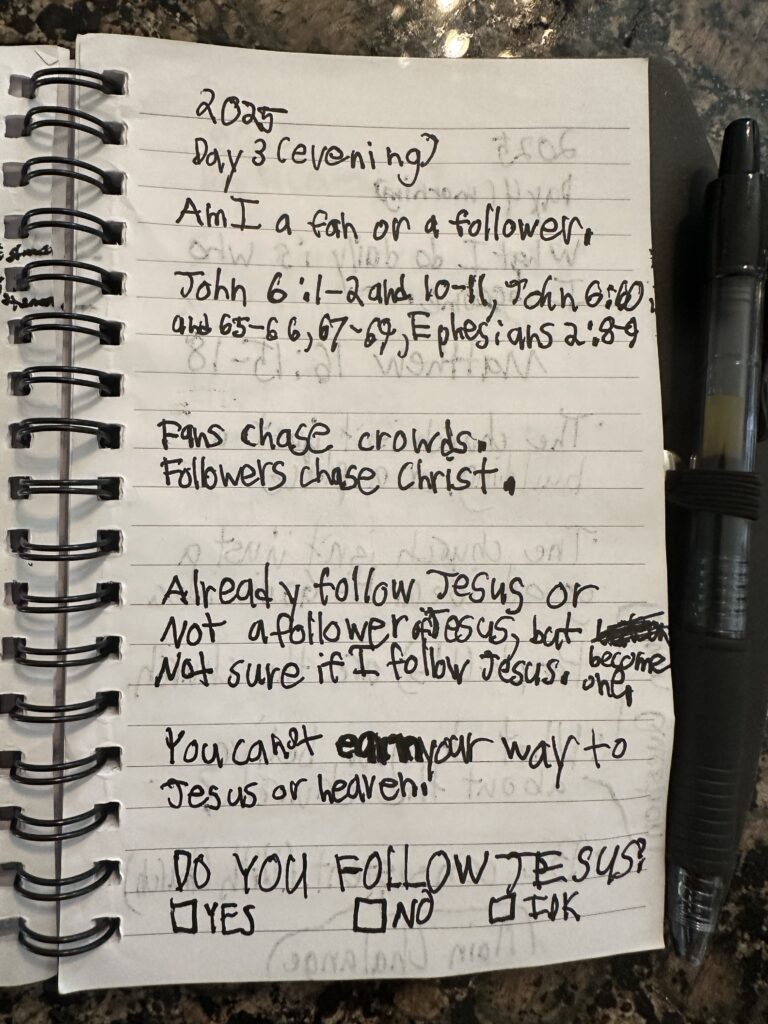 2025
Day 3 (evening)
Am I a fan or a follower.
John 6:1-2 and 10-11, John 6:60
and 65-66, 67-69, Ephesians 2:8-9
Fans chase crowds.
Followers chase Christ.
Already follow Jesus or
Not a follower of Jesus, but become one.
Not sure if I follow Jesus.
You canot earn your way to
Jesus or heaven.
DO YOU FOLLOW JESUS?
YES NO IDK